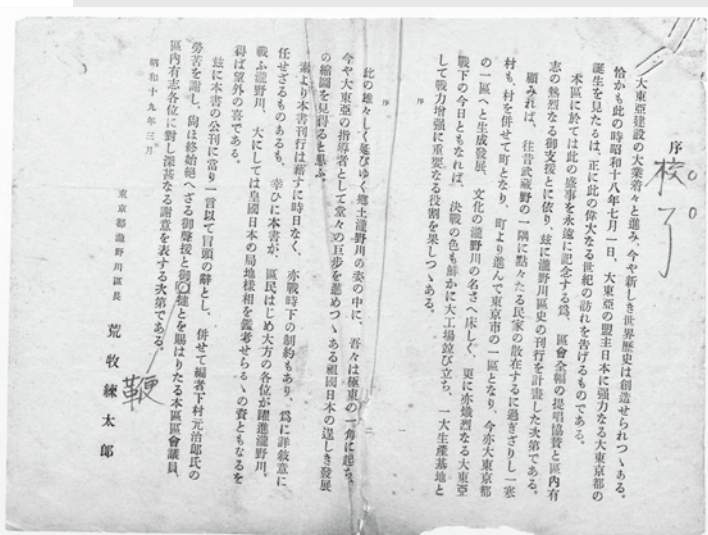 序
校了
大東亞建設の大業着々と進み、今や新しき世界歴史は創造せられつゝある。
恰かも此の時昭和十八年七月一日、大東亞の盟主日本に强力なる大東京都の
誕生を見たるは、正に此の偉大なる世紀の訪れを告げるものである。
本區に於ては此の盛事を永遠に記念する爲、區會全幅の提唱協賛と區內有
志の熱烈なる御支援とに依り、玆に瀧野川區史の刊行を計畫した次第である。
顧みれば、往昔武藏野の一隅に點々たる民家の散在するに過ぎざりし一寒
村も、村を併せて町となり、町より進んで東京市の一區となり、今亦大東京都
の一區へと生成發展、文化の瀧野川の名さへ床しく、更に亦熾烈なる大東亞
戰下の今日ともなれば、決戰の色も鮮かに大工場竝び立ち、一大生產基地と
して戰力增强に重要なる役割を果しつゝある。
序
一
序
二
此の雄々しく延びゆく鄕土瀧野川の姿の中に、吾々は極東の一角に起ち、
今や大東亞の指導者として堂々の巨步を進めつゝある祖國日本の逞しき發展
の縮圖を見得ると思ふ。
素より本書刊行は藉すに時日なく、亦戰時下の制約もあり、爲に詳敍意に
任せざるものあるも、幸ひに本書が、區民はじめ大方の各位が躍進瀧野川、
戰ふ瀧野川、大にしては皇國日本の局地樣相を鑑考せらるゝの資ともなるを
得ば望外の喜である。
玆に本書の公刊に當り一言以て冒頭の辭とし、併せて編者下村元治郞氏の
勞苦を謝し、尙ほ終始絕へざる御聲援と御撻とを賜はりたる本區區會議員、
鞭
區內有志各位に對し深甚なる謝意を表する次第である。
昭和十九年三月
東京都瀧野川區長 荒牧練太郞